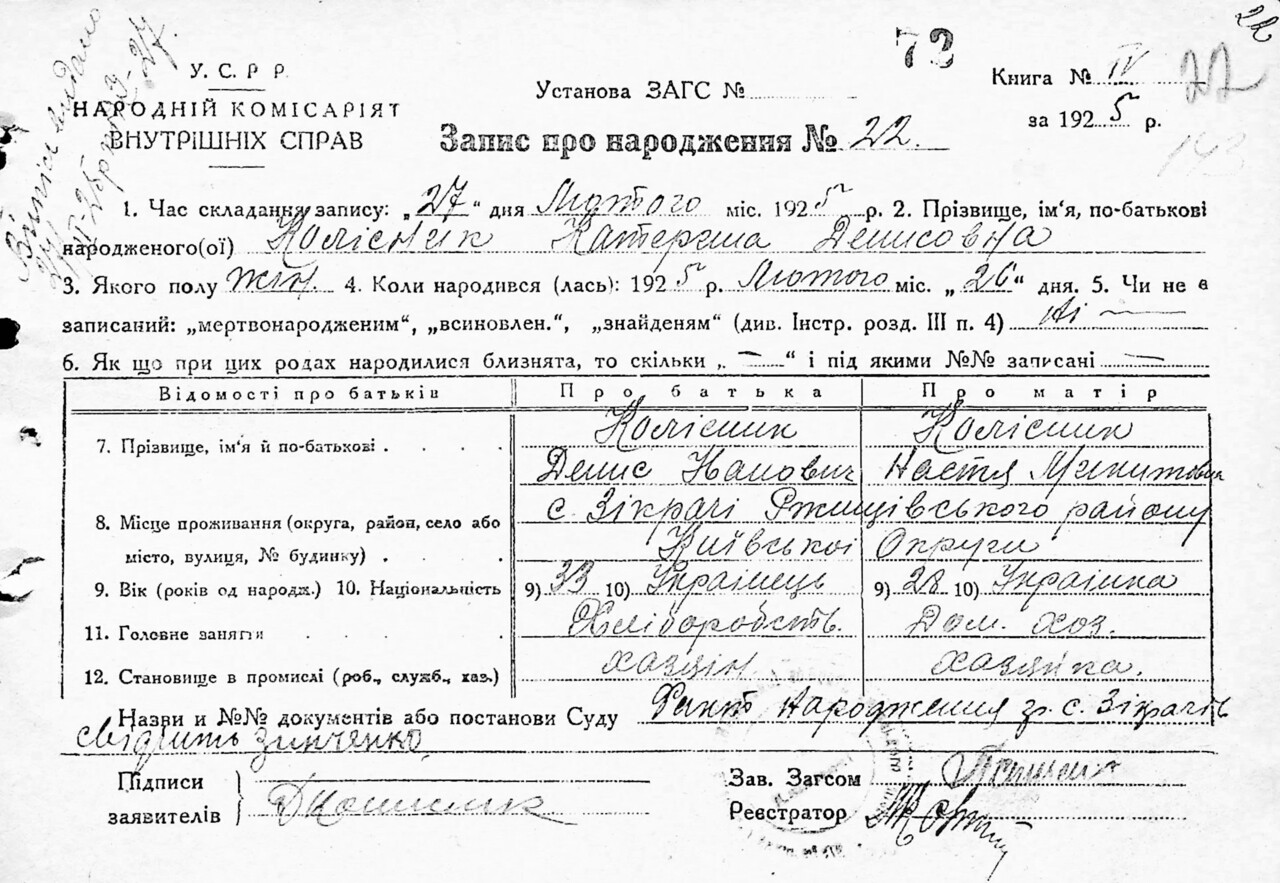 73
22
У. С. Р Р.
НАРОДНІЙ КОМІСАРІЯТ
ВНУТРІШНІХ СПРАВ
Установа ЗАГС №
Книга № IV
22
за 1925 р.
143
Запис про народження № 22.
1. Час складання запису: „27“ дня Лютого міс. 1925 р. 2. Прізвище, ім‘я, по-батькові
народженого(ої) Колісник Катерина Денисовна
3. Якого полу жін. 4. Коли народився (лась): 1925 р. Лютого міс. „26“ дня. 5. Чи не є
записаний: „мертвонародженим“, „всиновлен.“, „знайденям“ (див. Інстр. розд. III п. 4) Ні —
6. Як що при цих родах народилися близнята, то скільки „ — “ і під якими №№ записані —
Відомості про батьків Про батька Про матір
7. Прізвище, ім‘я й по-батькові . . . . Колісник Колісник
Денис Настя
8. Місце проживання (округа, район, село або с Зікрачі Ржищівського району
місто, вулиця, № будинку) . . . . Київської Округи
9. Вік (років од народж.) 10. Національність 9) 33 10) Украінець 9) 28 10) Украінка
11. Головне заняття . . . . Хліборобств. Дом. хоз.
12. Становище в промислі (роб., служб., хаз.) хазяін. хазяйка.
Назви и №№ документів або постанови Суду Факт народження з. с. Зікрачів
свідчить Зинченко
Підписи
заявителів
Зав. Загсом
Реєстратор